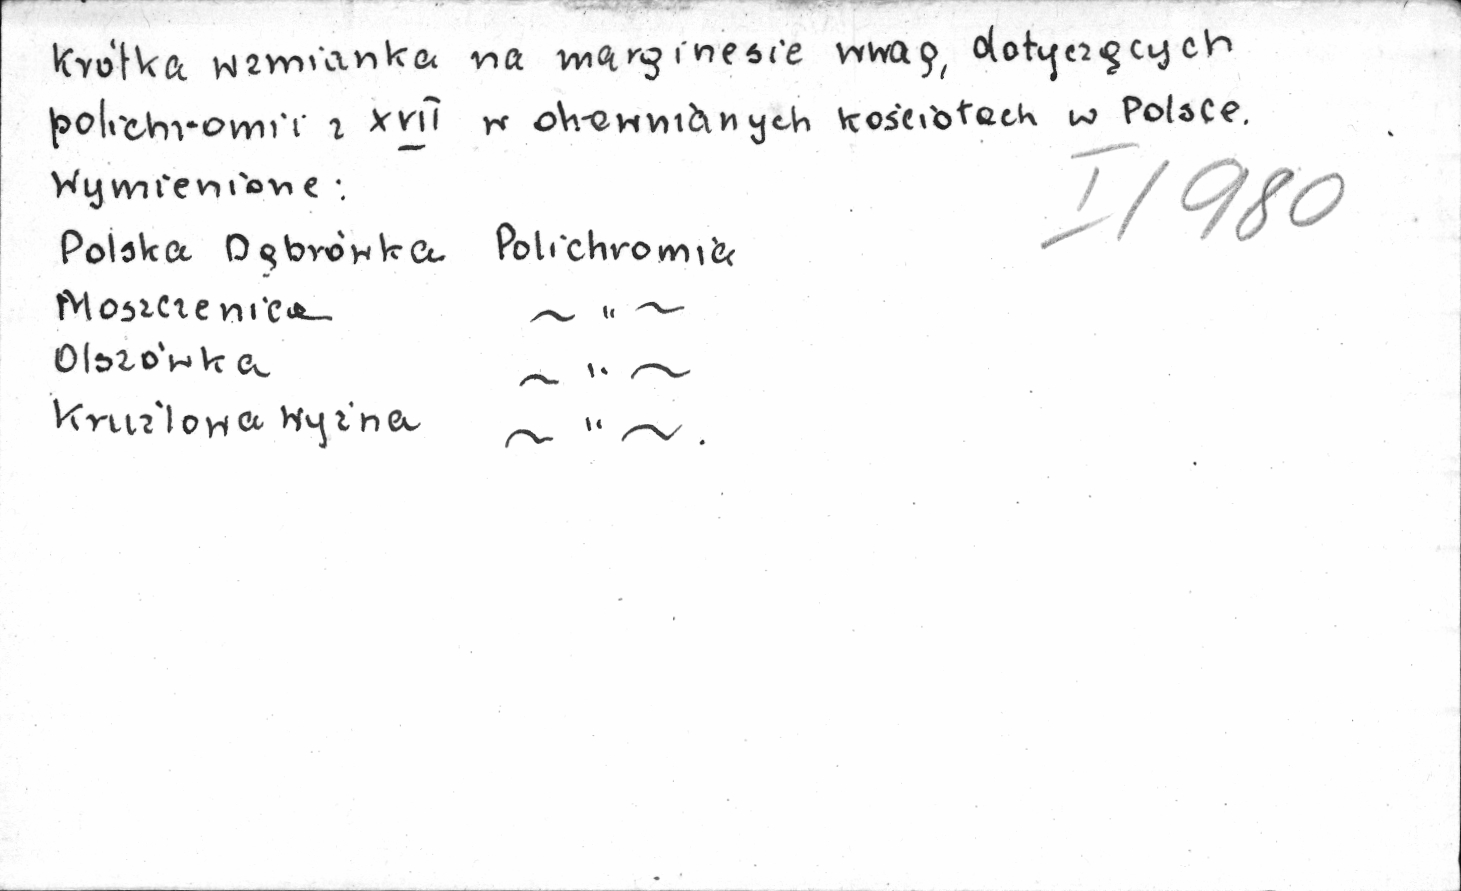 Krótka wzmianka na marginesie uwag, dotyczących
polichromii z XVII w drewnianych kościołach w Polsce.
Wymienione:
I/980
Polska Dąbrówka Polichromia
Moszczenica ~ " ~
Olszówka ~ " ~
Krużlowa Wyżna ~ " ~.